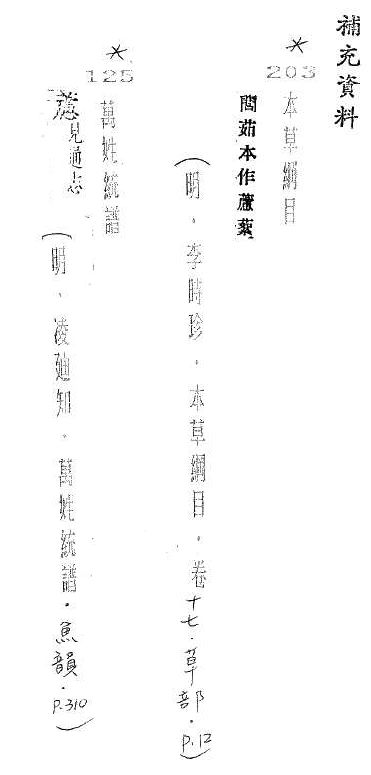 補充資料
*
203
本草綱目
閭茹本作藘蕠
(明．李時珍．本草綱目．卷十七．草部．P.12)
*
125
萬姓統譜
見通志
(明．凌迪知．萬姓統譜．魚韻．P.310)